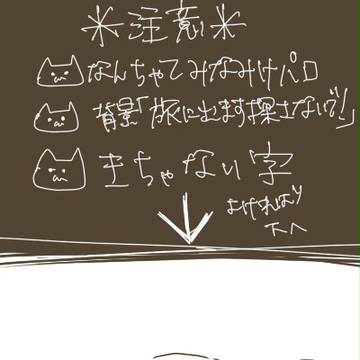 ＊注意＊
なんちゃてみなみけパロ
背景「旅に出ます探さないで!!」
きちゃない字
よければ
下へ